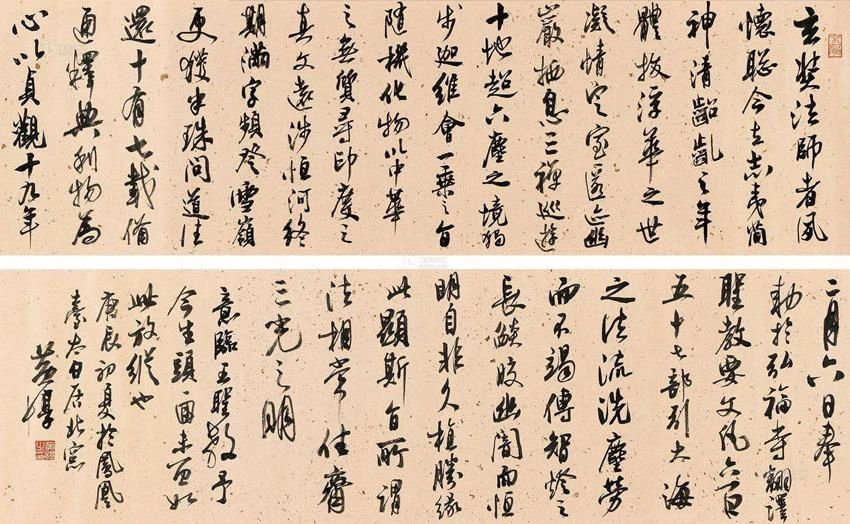 玄奘法師者夙
懷聡令立志夷簡
神清齠齔之年
體拔浮華之世
凝情定室匿迹幽
巖栖息三禪巡遊
十地超六塵之境獨
步迦維會一乘之旨
隨機化物以中華
之無質尋印度之
真文遠涉恒河終
期滿字頻登雪嶺
更獲半珠問道法
還十有七載備
通釋典利物為
心以貞觀十九年
二月六日奉
勅於弘福寺翻譯
聖教要文凡六百
五十七部引大海
之法流洗塵勞
而不竭傳智燈之
長燄皎幽闇而恒
明自非久植勝緣
此顯斯旨所謂
法相常住齊
三光之明
意臨王聖教予
今生頭未如
此放縱也
庚辰初夏於鳳凰
臺太白居北窗
黄惇